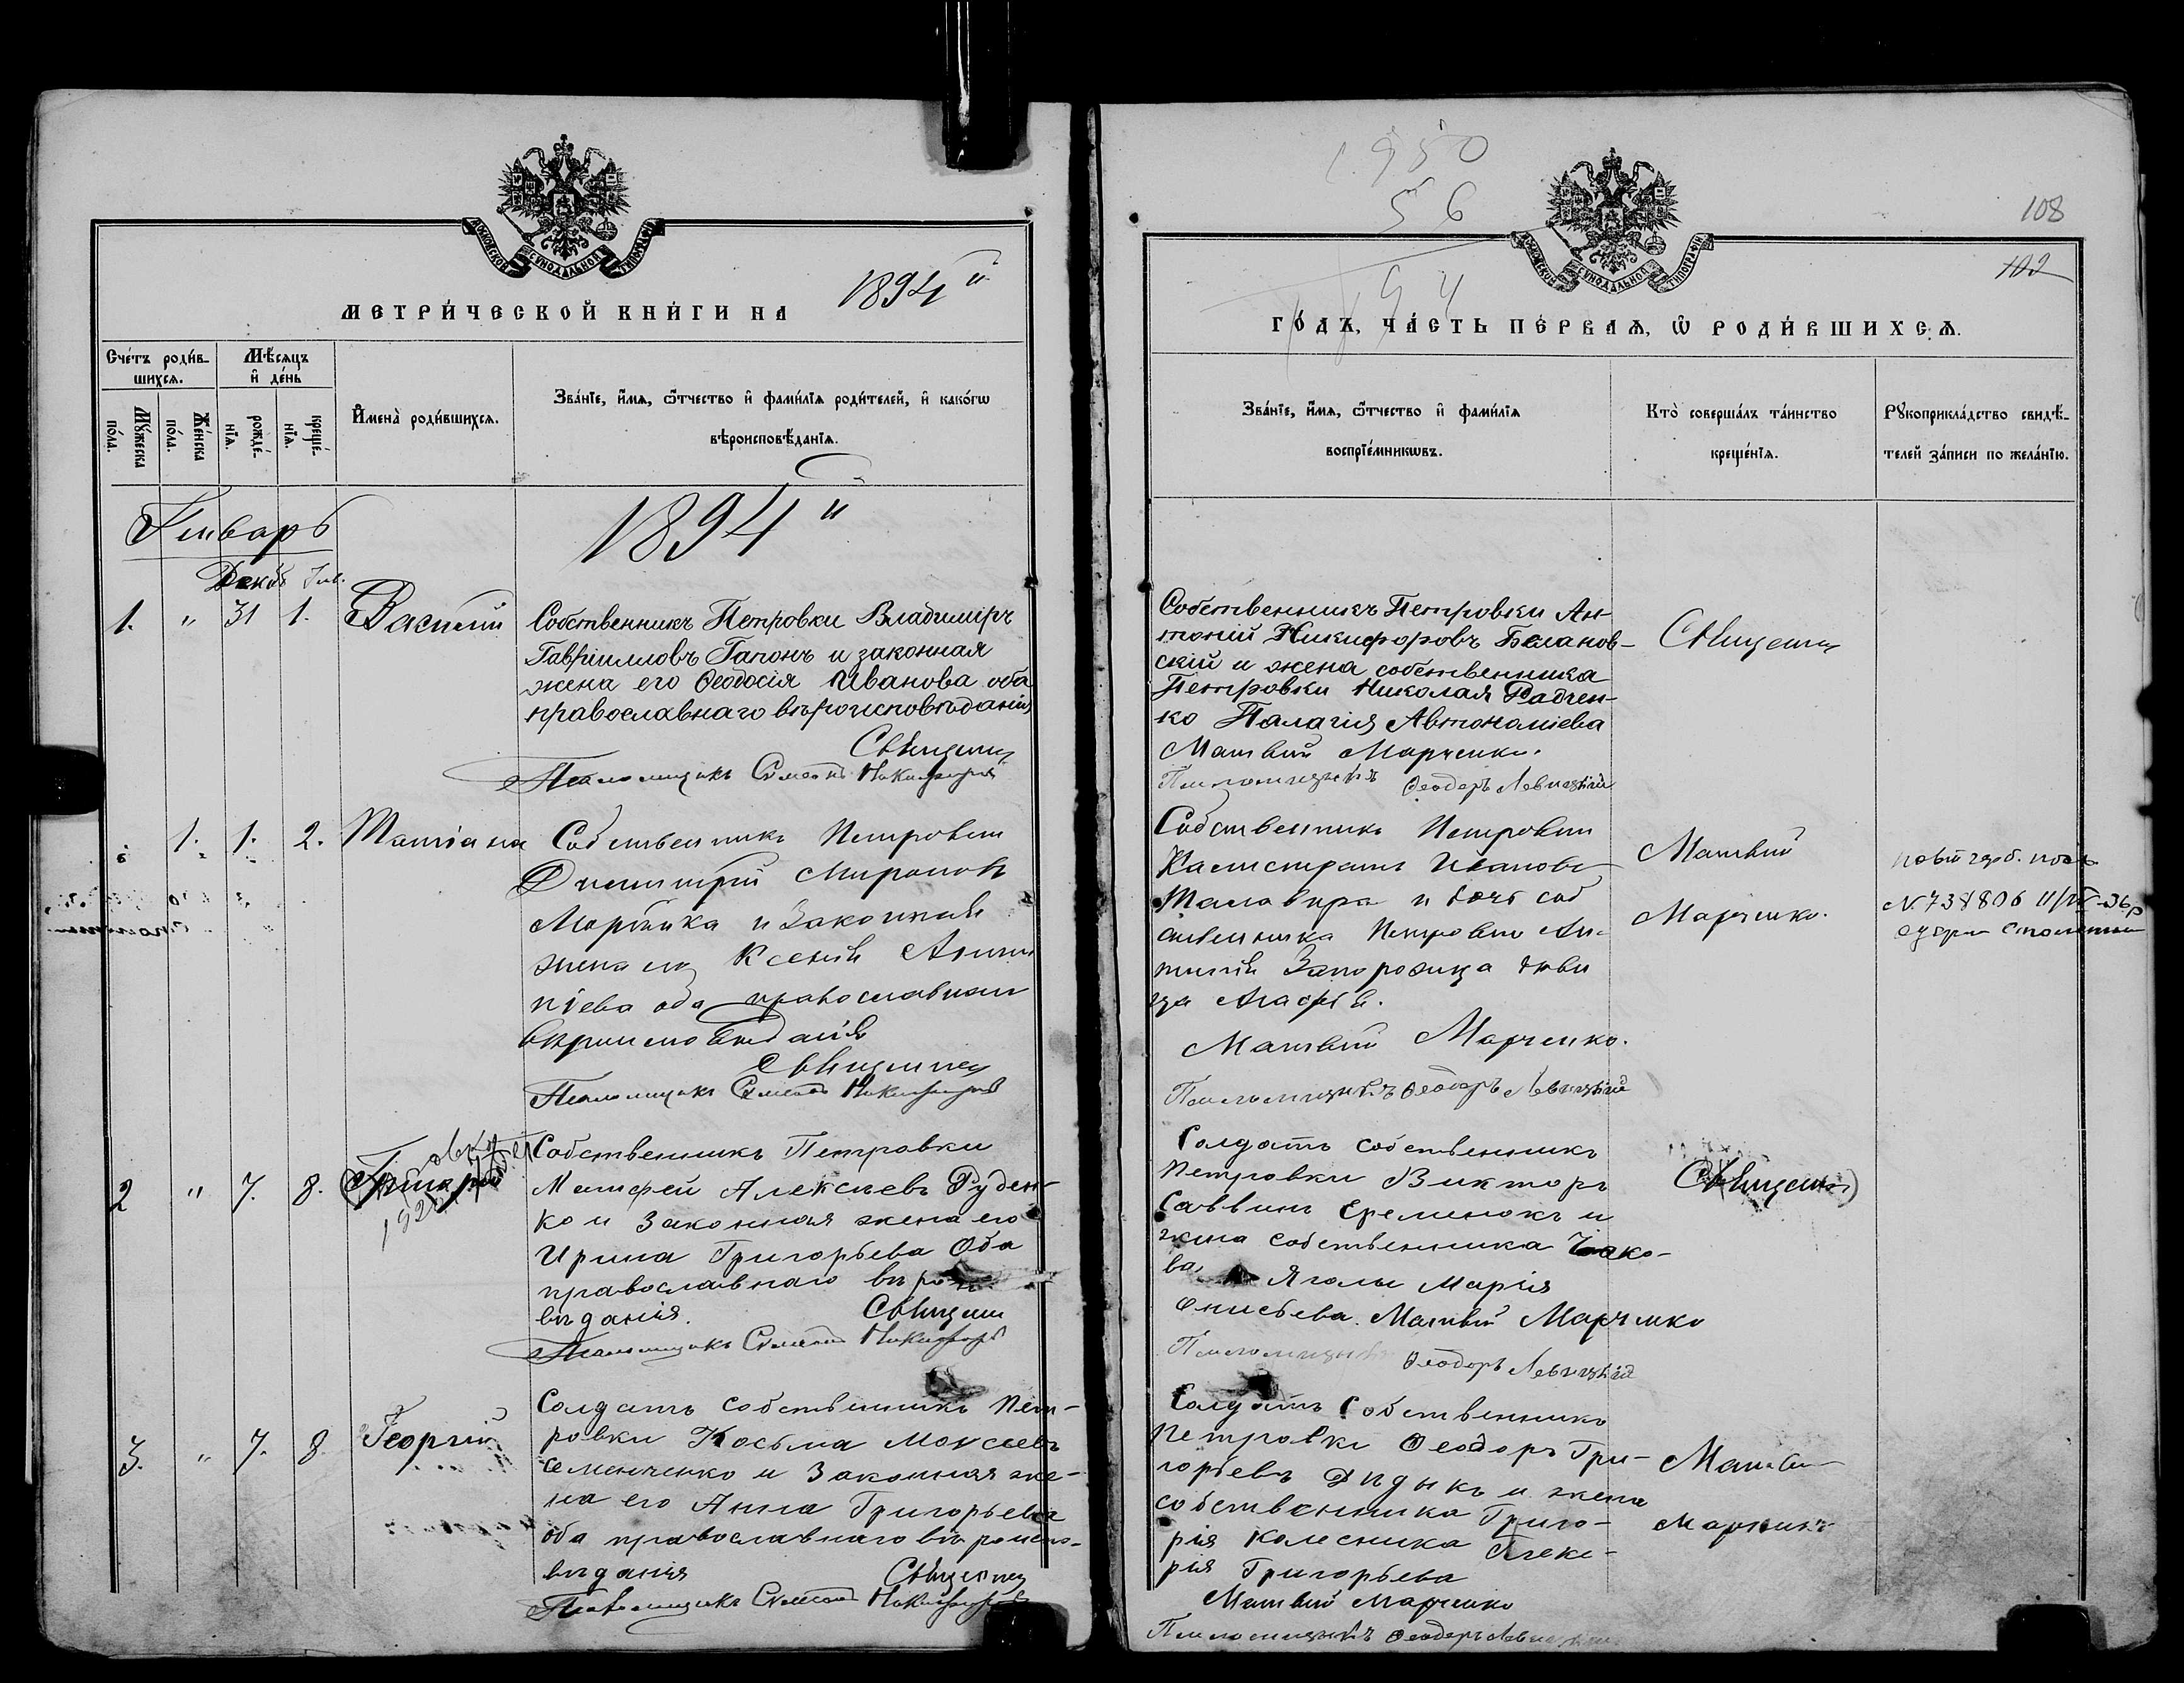 МОСКОВСКОЙ СѴНОДАЛЬНОЙ ТИПОГРАФІИ
МЕТРИ́ЧЕСКОЙ КНИ́ГИ НА 1894 "
Сче́тъ роди́в-
шихсѧ.
Мѣ́сѧцъ
и҆ де́нь
Мꙋ́жеска
по́ла.
Же́нска
по́ла.
рожде́-
нїѧ.
креще́-
нїѧ.
И҆мена̀ роди́вшихсѧ.
Зва́нїе, и҆́мѧ, ѻ҆́тчество и҆ фами́лїѧ роди́телей, и҆ како́гѡ
вѣроисповѣ́данїѧ.
Январь
1894 "
Декаб Янв.
1. " 31 1. Василій
Собственникъ Петровки Владиміръ
Гавріиловъ Гапонъ и законная
жена его Ѳеодосія Иванова оба
православнаго вѣроисповѣданія
Псаломщикъ Никифоровъ
1. 1. 2. Татіана
Собственникъ Петровки
Димитрій Мироновъ
и законная
жена его Ксенія Анти
піева оба православнаго
вѣроисповѣданія
Псаломщикъ Никифоровъ
2 " 7. 8. Григорій
Собственникъ Петровки
Матфей Алексѣевъ Руден-
ко и законная жена его
Ирина Григорьева Оба
православнаго вѣро
вѣданія.
Псаломщикъ Никифоровъ
3. " 7. 8. Георгій
Солдатъ собственникъ Пет-
ровки Косьма Моѵсеевъ
Семенченко и законная же-
на его Анна Григорьева
оба православнаго вѣроиспо-
вѣданія
Псаломщикъ Никифоровъ
1950
56
108
102
МОСКОВСКОЙ СѴНОДАЛЬНОЙ ТИПОГРАФІИ
94
ГО́ДЪ, ЧА́СТЬ ПЕ́РВАѦ, Ѡ҆ РОДИ́ВШИХСѦ.
Зва́нїе, и҆́мѧ, ѻ҆́тчество и҆ фами́лїѧ
воспрїе́мникѡвъ.
Кто̀ соверша́лъ та́инство
креще́нїѧ.
Рꙋкоприкла́дство свидѣ́-
телей за́писи по жела́нїю.
Собственникъ Петровки Ан-
тоній Никифоровъ Беланов-
скій и жена собственника
Петровки Николая Радчен-
ко Палагія Автономіева
Матвій Марченко.
Псаломщикъ Ѳеодоръ Левицкій
Собственникъ Петровки
Калистратъ Ивановъ
Талавира и дочь соб
ственника Петровки Ан-
Запорожца дѣви
ца Агафія.
Матвій Марченко.
Псаломщикъ Ѳеодоръ Левицкій
Матвій
Марченко.
N. 738806
Солдатъ собственникъ
Петровки Викторъ
Саввинъ Еременокъ и
жена собственника Іако-
ва Яголы Марія
Онисьева. Матвій Марченко
Псаломщикъ Ѳеодоръ Левицкій
Солдатъ Собственникъ
Петровки Ѳеодоръ Гри-
горьевъ Дидыкъ и жена
собственника Григо-
рія Колесника
рія Григорьева
Матвій Марченко
Псаломщикъ Ѳеодоръ Левицкій
Матвій
Марченко